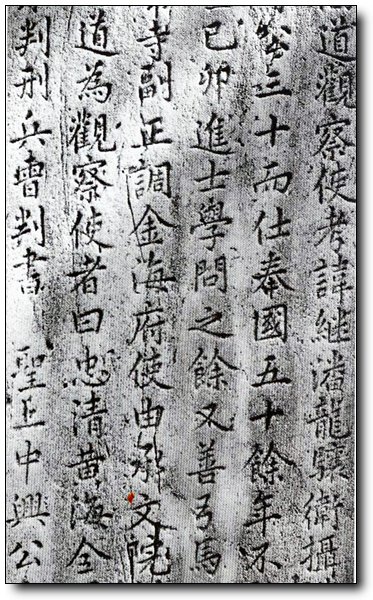 道觀察使考諱継潘龍驤衛攝
公三十而仕奉國五十餘年不
己卯進士學問之餘又善弓馬
寺副正調金海府使由承文院
道為觀察使者曰忠清黃海全
判刑兵曹判書 聖上中興公